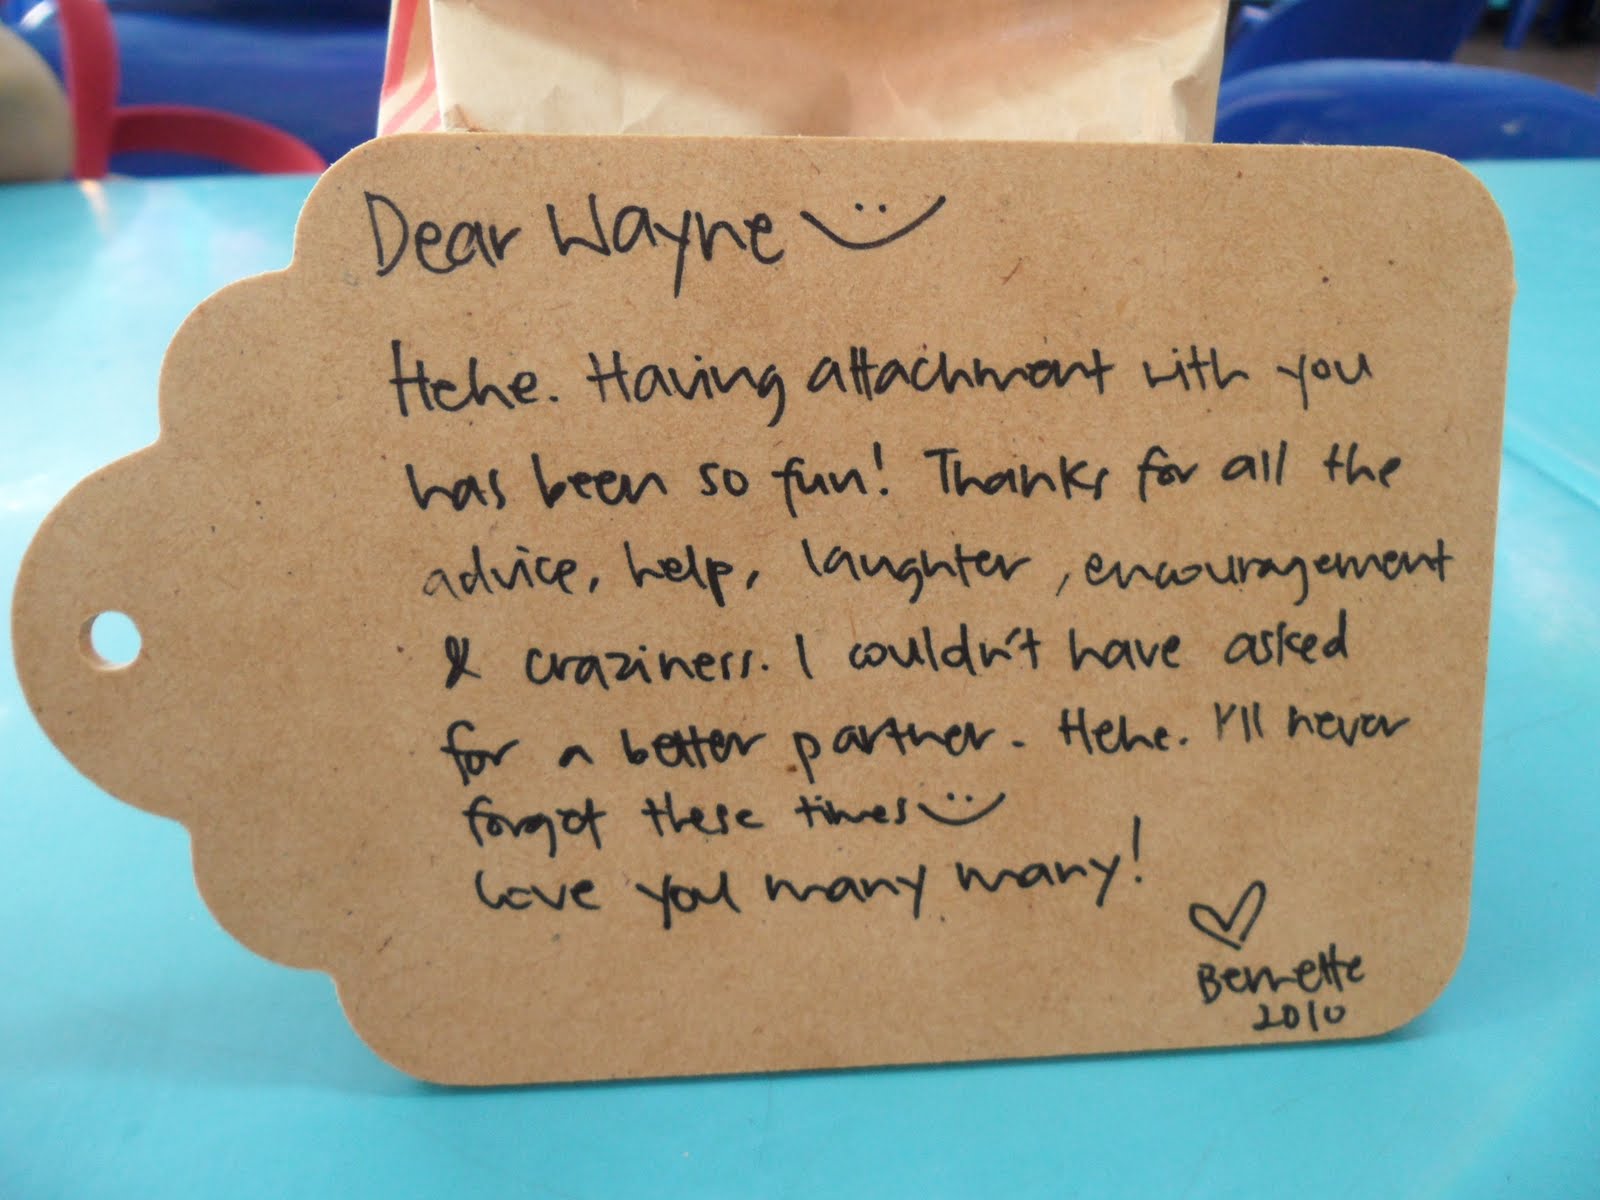 Dear Wayne
Hehe. Having attachment with you
has been so fun! Thanks for all the
advice, help, laughter, encouragement
& craziness. I couldn't have asked
for a better partner. Hehe. I'll never
forget these times
Love you many many!
Bernette
2010